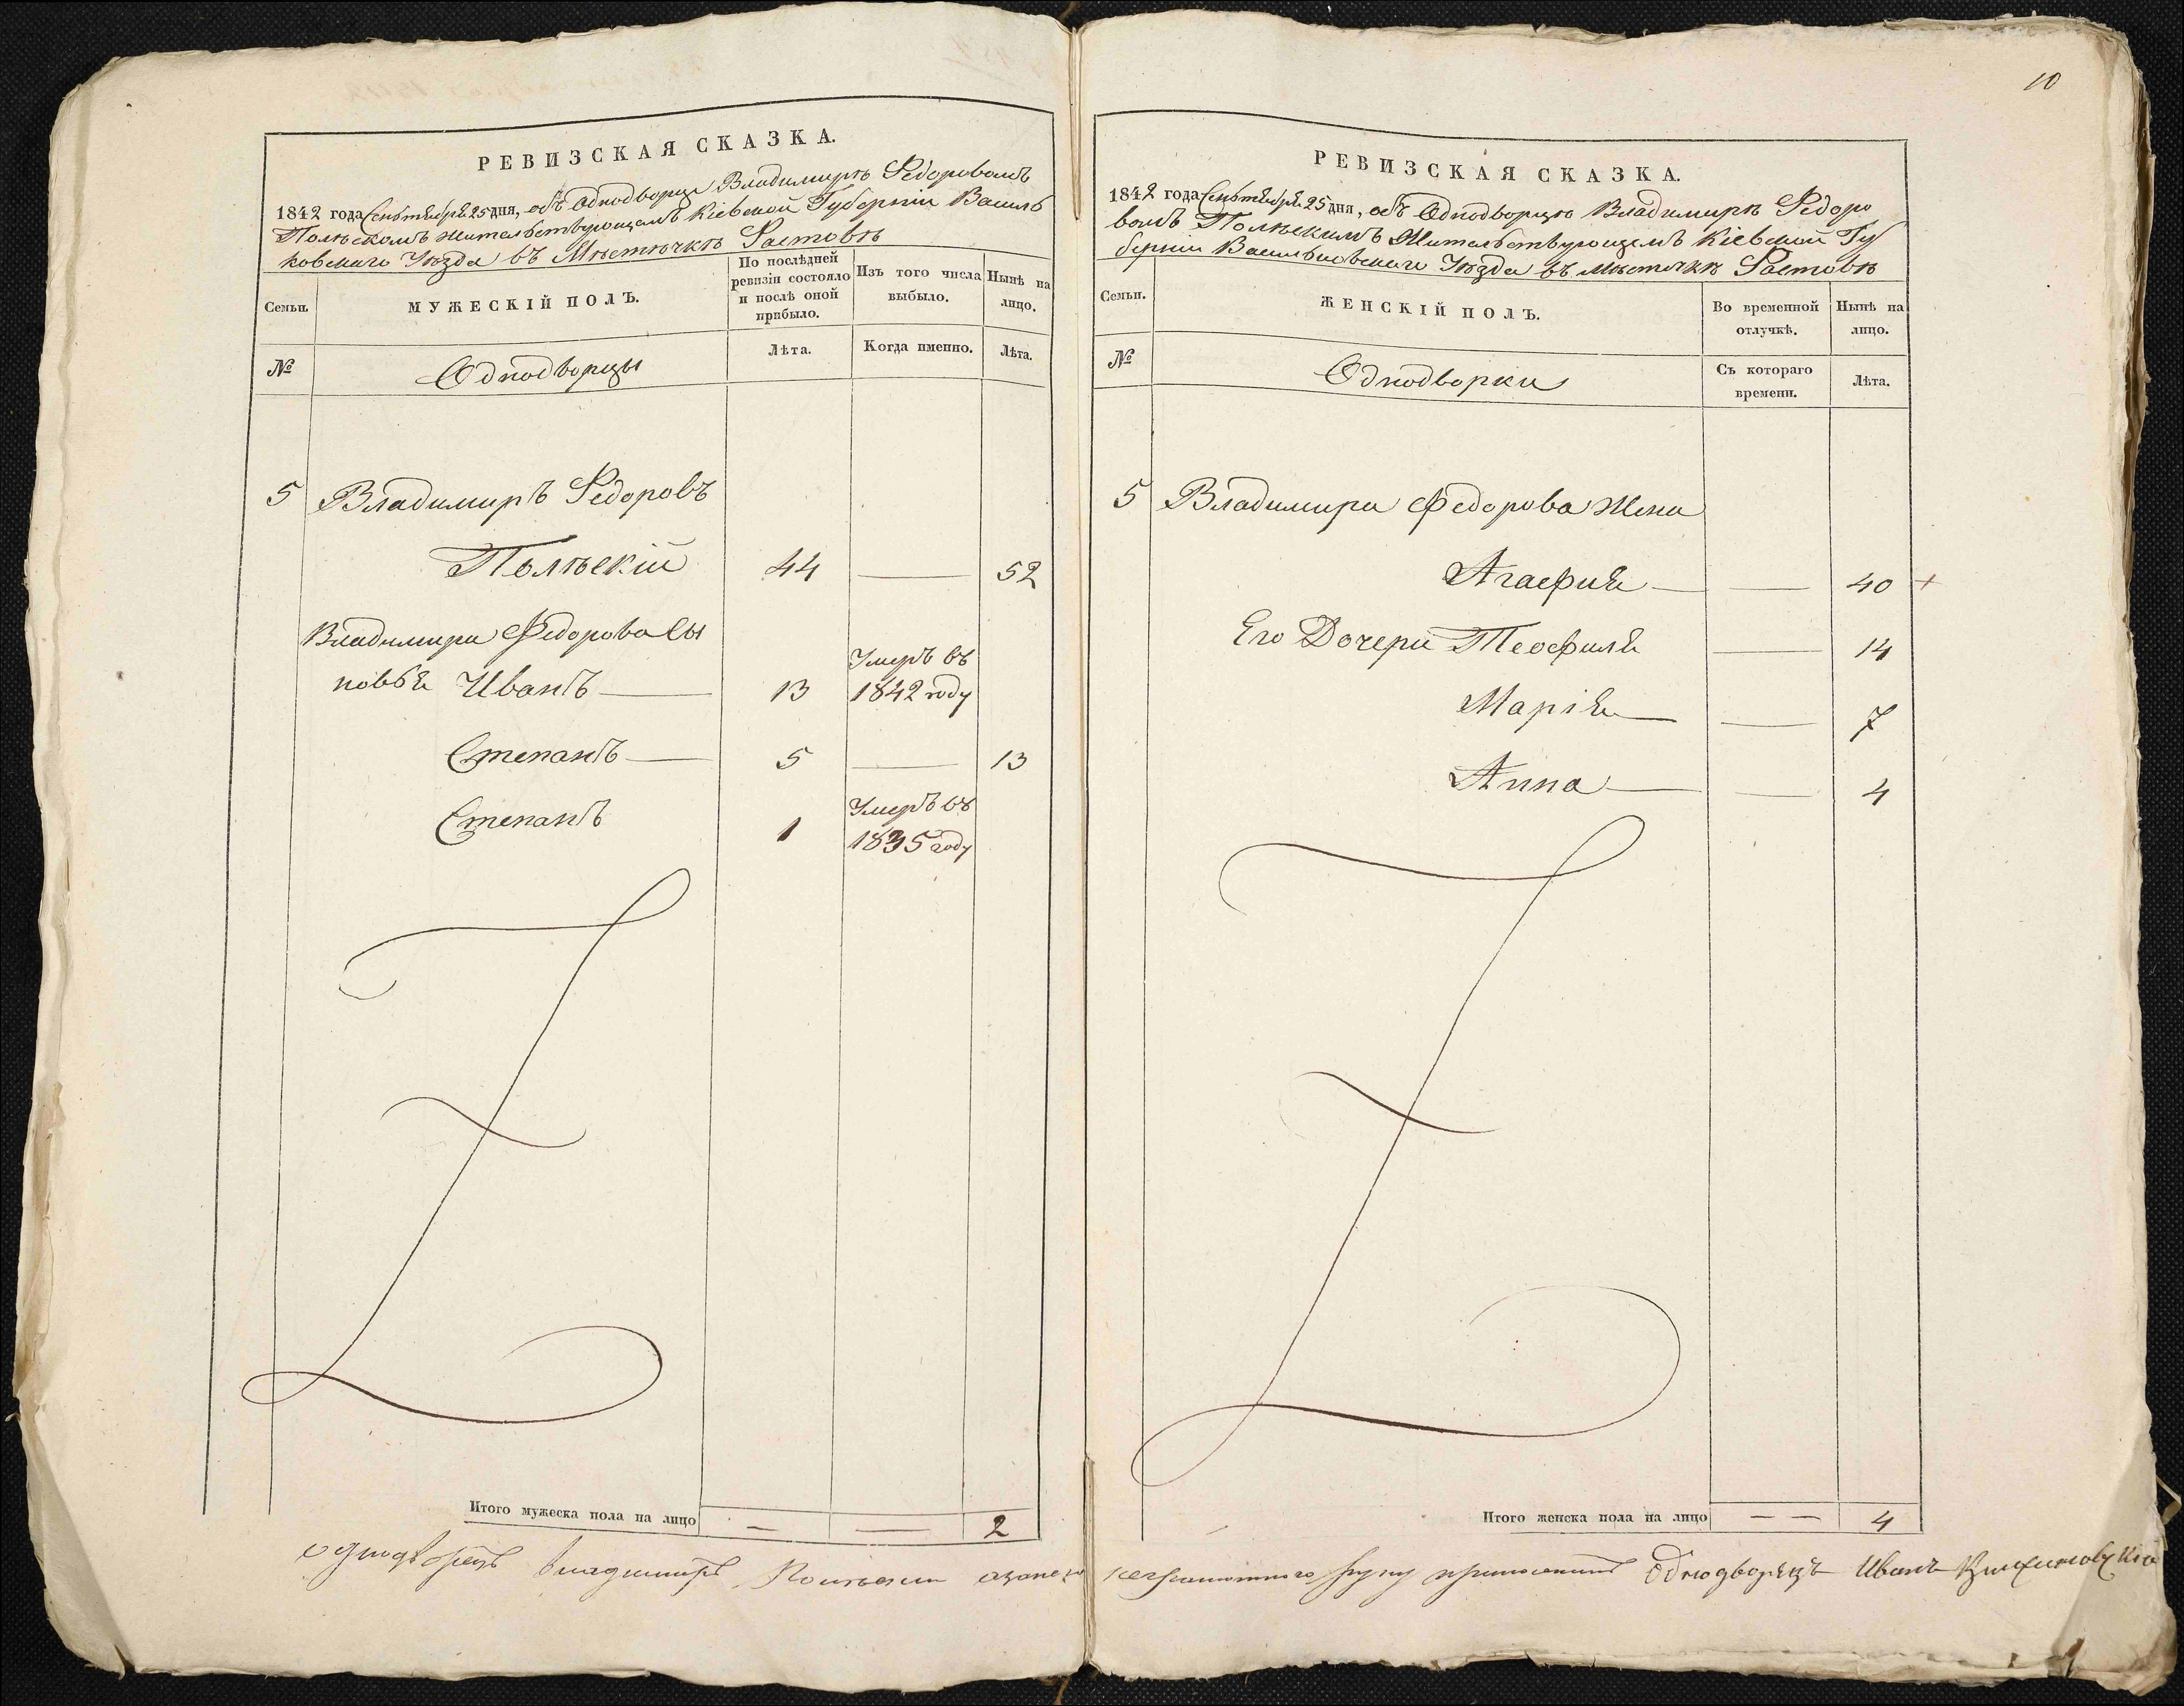 РЕВИЗСКАЯ СКАЗКА.
1842 года Сентября 25 дня, объ Однодворце Владимиръ Ѳедоровомъ
Полѣскомъ жительствующемъ Кіевской Губерніи Василь
ковскаго Уѣзда въ Мѣстѣчкѣ Фастовѣ
Семьи.
МУЖЕСКІЙ ПОЛЪ.
По послѣдней ревизіи состояло и послѣ оной прибыло.
Изъ того числа выбыло.
Нынѣ на лицо.
№
Однодворцы
Лѣта.
Когда именно.
Лѣта.
5 Владимиръ Ѳедоровъ
Полѣскій 44 — 52
Владимира Федорова Сы
новья Иванъ — 13 Умеръ въ 1842 году
Степанъ — 5 — 13
Степанъ 1 Умеръ въ 1835 году
Итого мужеска пола на лицо — — 2
10
РЕВИЗСКАЯ СКАЗКА.
1842 года Сентября 25 дня, объ Однодворцѣ Владимирѣ Ѳедоро
вомъ Полѣскимъ Жительствующемъ Кіевской Гу
берніи Васильковскаго Уѣзда въ мѣстѣчкѣ Фастовѣ
Семьи.
ЖЕНСКІЙ ПОЛЪ.
Во временной отлучкѣ.
Нынѣ на лицо.
№
Однодворки
Съ котораго времени.
Лѣта.
5 Владимира Федорова Жена
Агафия — — 40 +
Его Дочери Теофиля — 14
Марія — — 7
Анна — — 4
Итого женска пола на лицо — — 4
однодворецъ Владимиръ Полѣский а за него неграмотного руку приложилъ Однодворецъ Иванъ